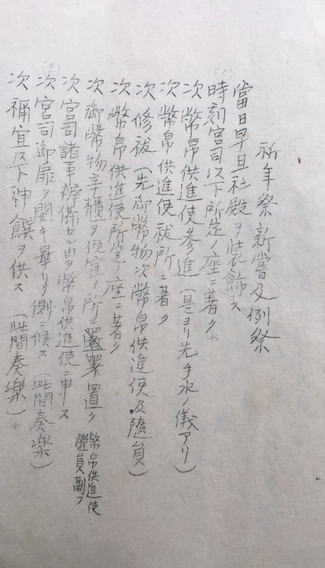 祈年祭新嘗及例祭
當日早旦社殿ヲ装飾ス
時刻宮司以下所定ノ座ニ著ク
次幣帛供進使参進(是ヨリ先手水ノ儀アリ)
次幣帛供進使祓所ニ著ク
次修祓(先御幣物次幣帛供進使及随員)
次幣帛供進使所定ノ座ニ著ク
次御幣物辛櫃ヲ便宜ノ所ニ置ク
幣帛供進使
随員副フ
次宮司諸事辨備セル旨幣帛供進使ニ申ス
次宮司御扉ヲ開キ畢リテ側ニ候ス(此間奏楽)
次禰宜以下神饌ヲ供ス(此間奏楽)